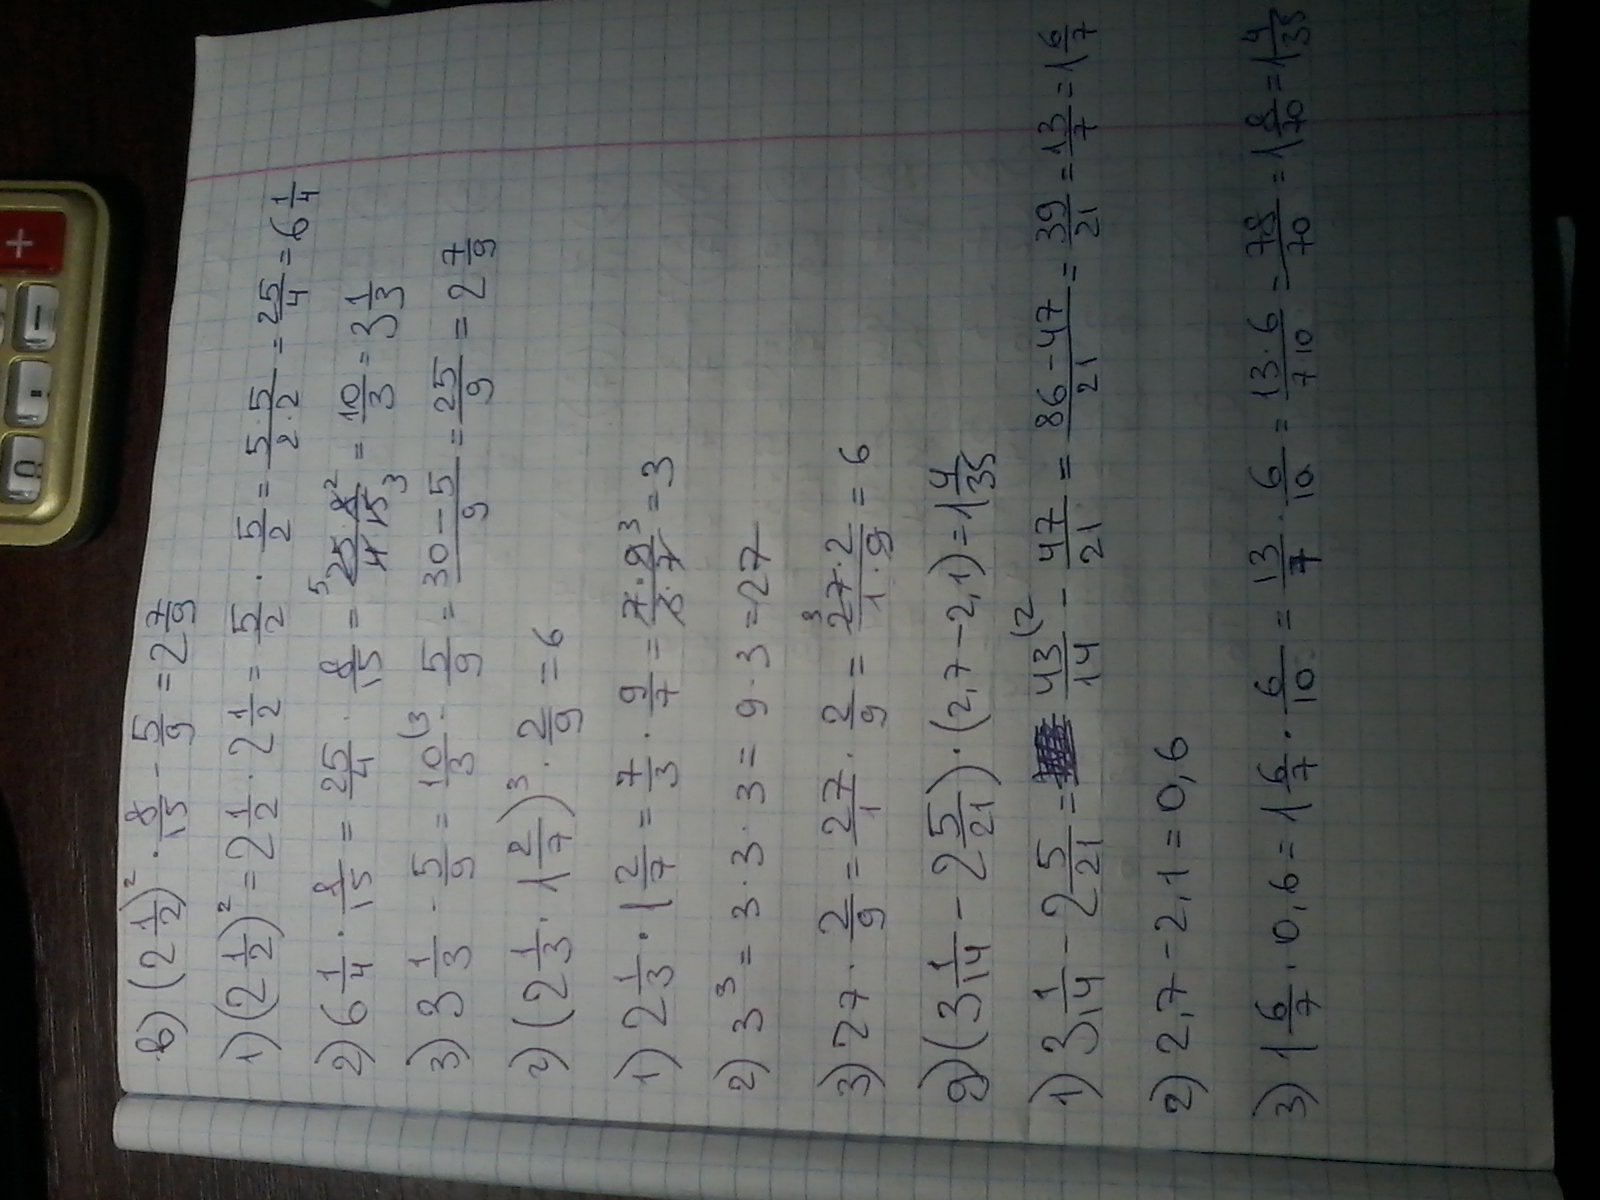 в) (2 1/2)² · 8/15 - 5/9 = 2 7/9
1) (2 1/2)² = 2 1/2 · 2 1/2 = 5/2 · 5/2 = 5·5/2·2 = 25/4 = 6 1/4
2) 6 1/4 · 8/15 = 25/4 · 8/15 = ⁵25·8²/4·15₃ = 10/3 = 3 1/3
3) 3 1/3 - 5/9 = 10/3⁽³ - 5/9 = 30-5/9 = 25/9 = 2 7/9
г) (2 1/3 · 1 2/7)³ · 2/9 = 6
1) 2 1/3 · 1 2/7 = 7/3 · 9/7 = 7·9³/3·7 = 3
2) 3³ = 3·3·3 = 9·3 = 27
3) 27 · 2/9 = 27/1 · 2/9 = ³27·2/1·9 = 6
д) (3 1/14 - 2 5/21) · (2,7 - 2,1) = 1 4/35
1) 3 1/14 - 2 5/21 = 43/14⁽² - 47/21 = 86-47/21 = 39/21 = 13/7 = 1 6/7
2) 2,7 - 2,1 = 0,6
3) 1 6/7 · 0,6 = 1 6/7 · 6/10 = 13/7 · 6/10 = 13·6/7 10 = 78/70 = 1 8/70 = 1 4/35
+